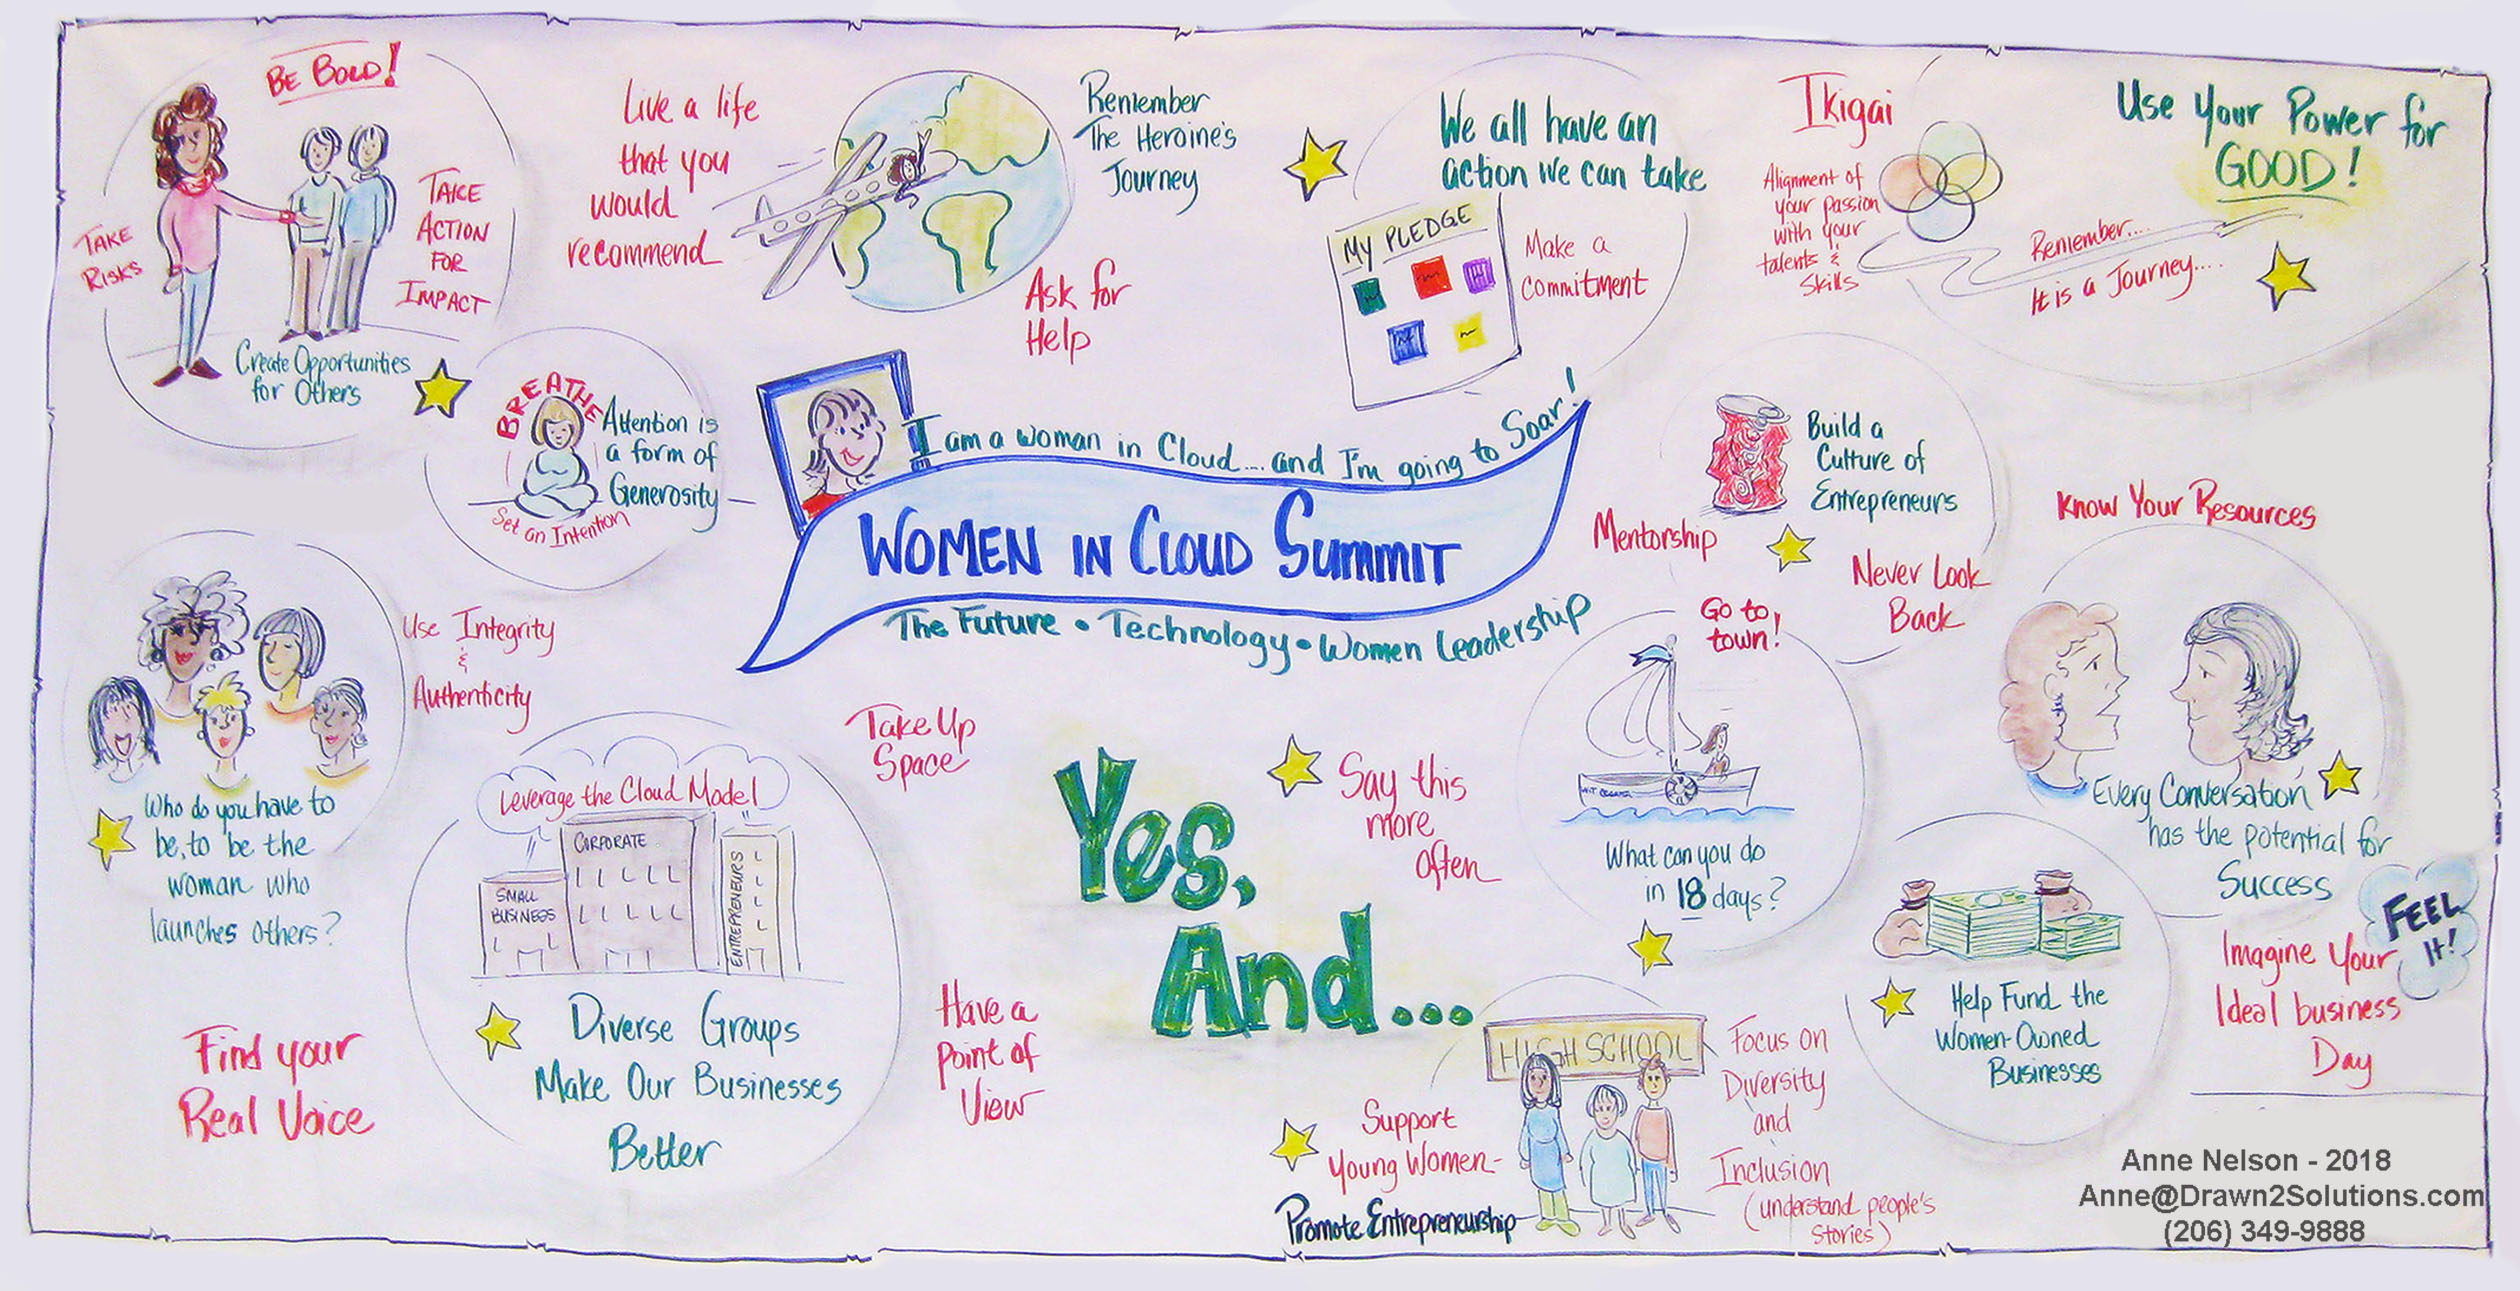 BE BOLD!
TAKE
RISKS
TAKE
ACTION
FOR
IMPACT
Create Opportunities
for Others
Live a life
that you
would
recommend
Remember
The Heroine's
Journey
Ask for
Help
We all have an
action we can take
MY PLEDGE
Make a
commitment
Ikigai
Alignment of
your passion
with your
talents &
Skills
Use Your Power for
GOOD!
Remember....
It is a Journey....
BREATHE
Attention is
a form of
Generosity
Set an Intention
I am a woman in Cloud.... and I'm going to Soar!
WOMEN IN CLOUD SUMMIT
The Future • Technology • Women Leadership
Build a
Culture of
Entrepreneurs
Mentorship
Never Look
Back
Know Your Resources
Every Conversation
has the potential for
Success
Use Integrity
&
Authenticity
Who do you have to
be, to be the
woman who
launches others?
Find your
Real Voice
Leverage the Cloud Model
SMALL
BUSINESS
CORPORATE
ENTREPRENEURS
Diverse Groups
Make Our Businesses
Better
Take Up
Space
Have a
point of
View
Yes,
And...
Say this
more
often
Go to
town!
What can you do
in 18 days?
Support
Young Women-
Promote Entrepreneurship
HIGH SCHOOL
Focus on
Diversity
and
Inclusion
(understand people's
Stories)
Help Fund the
Women-Owned
Businesses
FEEL
IT!
Imagine Your
Ideal business
Day
Anne Nelson - 2018
Anne@Drawn2Solutions.com
(206) 349-9888